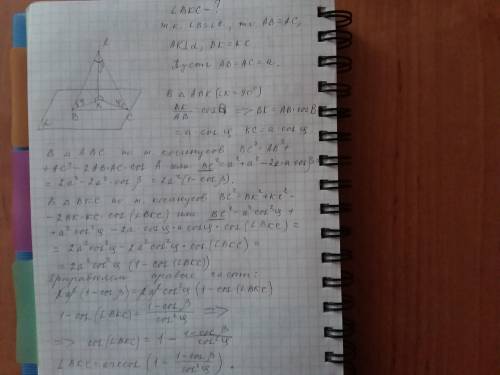 ∠BKC - ?
т.к. ∠B=∠C, то AB=AC,
AK⊥α, BK=KC
Пусть AB=AC=a.
В △ABK (∠K=90°)
BK/AB = cosB => BK=AB·cosB
= a cosφ, KC=a cosφ.
В △ABC по т. косинусов BC²=AB²+
+AC²-2AB·AC·cos A или BC²=a²+a²-2a·a cosβ=
= 2a²-2a²cosβ = 2a²(1-cosβ).
В △BKC по т. косинусов BC²=BK²+KC²-
-2BK·KC·cos(∠BKC) или BC²=a²cos²φ+
+a²cos²φ-2a·cosφ·a cosφ·cos(∠BKC)=
= 2a²cos²φ-2a²cos²φ·cos(∠BKC)=
= 2a²cos²φ(1-cos(∠BKC))
Приравняем правые части:
2a²(1-cosβ)=2a²cos²φ(1-cos(∠BKC)
1-cos(∠BKC)=(1-cosβ)/cos²φ =>
=> cos(∠BKC)=1-(1-cosβ)/cos²φ
∠BKC=arccos(1-(1-cosβ)/cos²φ).
A
B
K
C
α